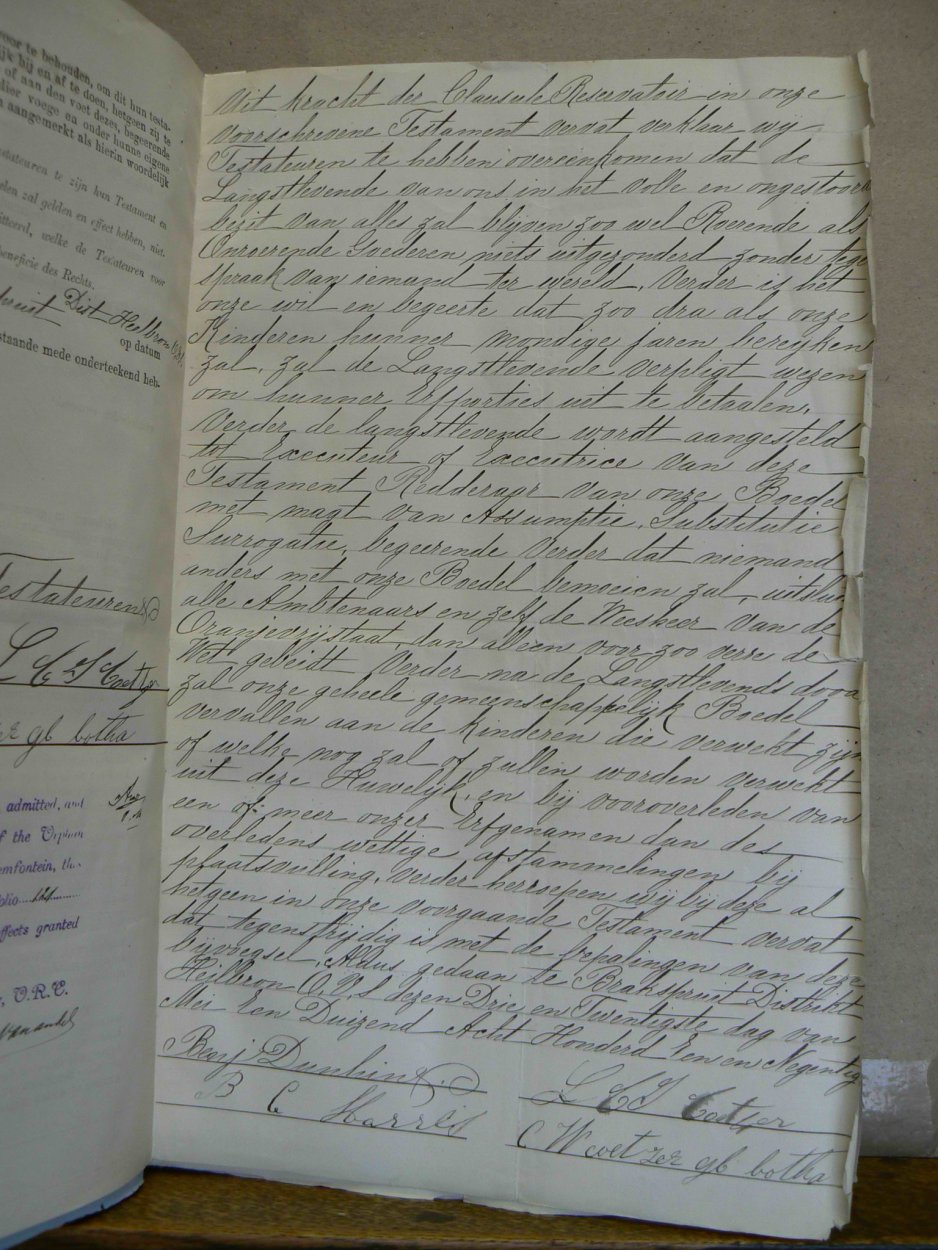 voor te behouden, om dit hun testa-
bij en af te doen, hetgeen zij te
of aan den voet dezes, begeerende
voege en onder hunne eigene
aangemerkt als hierin woordelijk
Testateuren te zijn hun Testament en
zal gelden en effect hebben, niet-
welke de Testateuren voor
beneficie des Rechts.
Dist Heilbron
op datum
staande mede onderteekend heb-
Testateuren
L C S Coetzer
gb botha
admitted, and
of the Orphan
emfontein, the
folio 124
effects granted
O.R.C.
Uit kracht der Clausule Reservatoir in onze
voorschrevene Testament vervat, verklaar wij
Testateuren te hebben overeenkomen dat de
Langstlevende van ons in het volle en ongestoord
bezit van alles zal blijven zoo wel Roerende als
Onroerende Goederen niets uitgezonderd zonder tege
spraak van iemand ter wereld. Verder is het
onze wil en begeerte dat zoo dra als onze
Kinderen hunner mondige jaren bereyken
zal, zal de Langstlevende verpligt wezen
om hunner Erfporties uit te betaalen.
Verder de langstlevende wordt aangesteld
tot Executeur of Executrice van deze
Testament Redderaar van onze Boedel
met magt van Assumptie, Substitutie
Surrogatie, begeerende Verder dat niemand
anders met onze Boedel bemoeien zal, uitslui
alle Ambtenaars en zelf de Weeskeer van de
Oranjevrijstaat, dan alleen voor zoo verre de
Wet gebiedt Verder na de Langstlevends dood
zal onze geheele gemeenschappelijk Boedel
vervallen aan de kinderen die verwekt zijn
of welke nog zal of zullen worden verwekt
uit deze Huwelijk, en bij vooroverleden van
een of meer onzer Erfgenamen dan des
overledens wettige afstammelingen bij
plaatsvulling. Verder herroepen wij bij deze al
hetgeen in onze voorgaande Testament vervat
dat tegenstrijdig is met de bepalingen van deze
bijvoegsel. Aldus gedaan te Brakspruit Distrikt
Heilbron O.V.S dezen Drie en Twentigste dag van
Mei Een Duizend Acht Honderd Een en Negentig
L C S Coetzer
B C Harris
C W coet zer gb botha